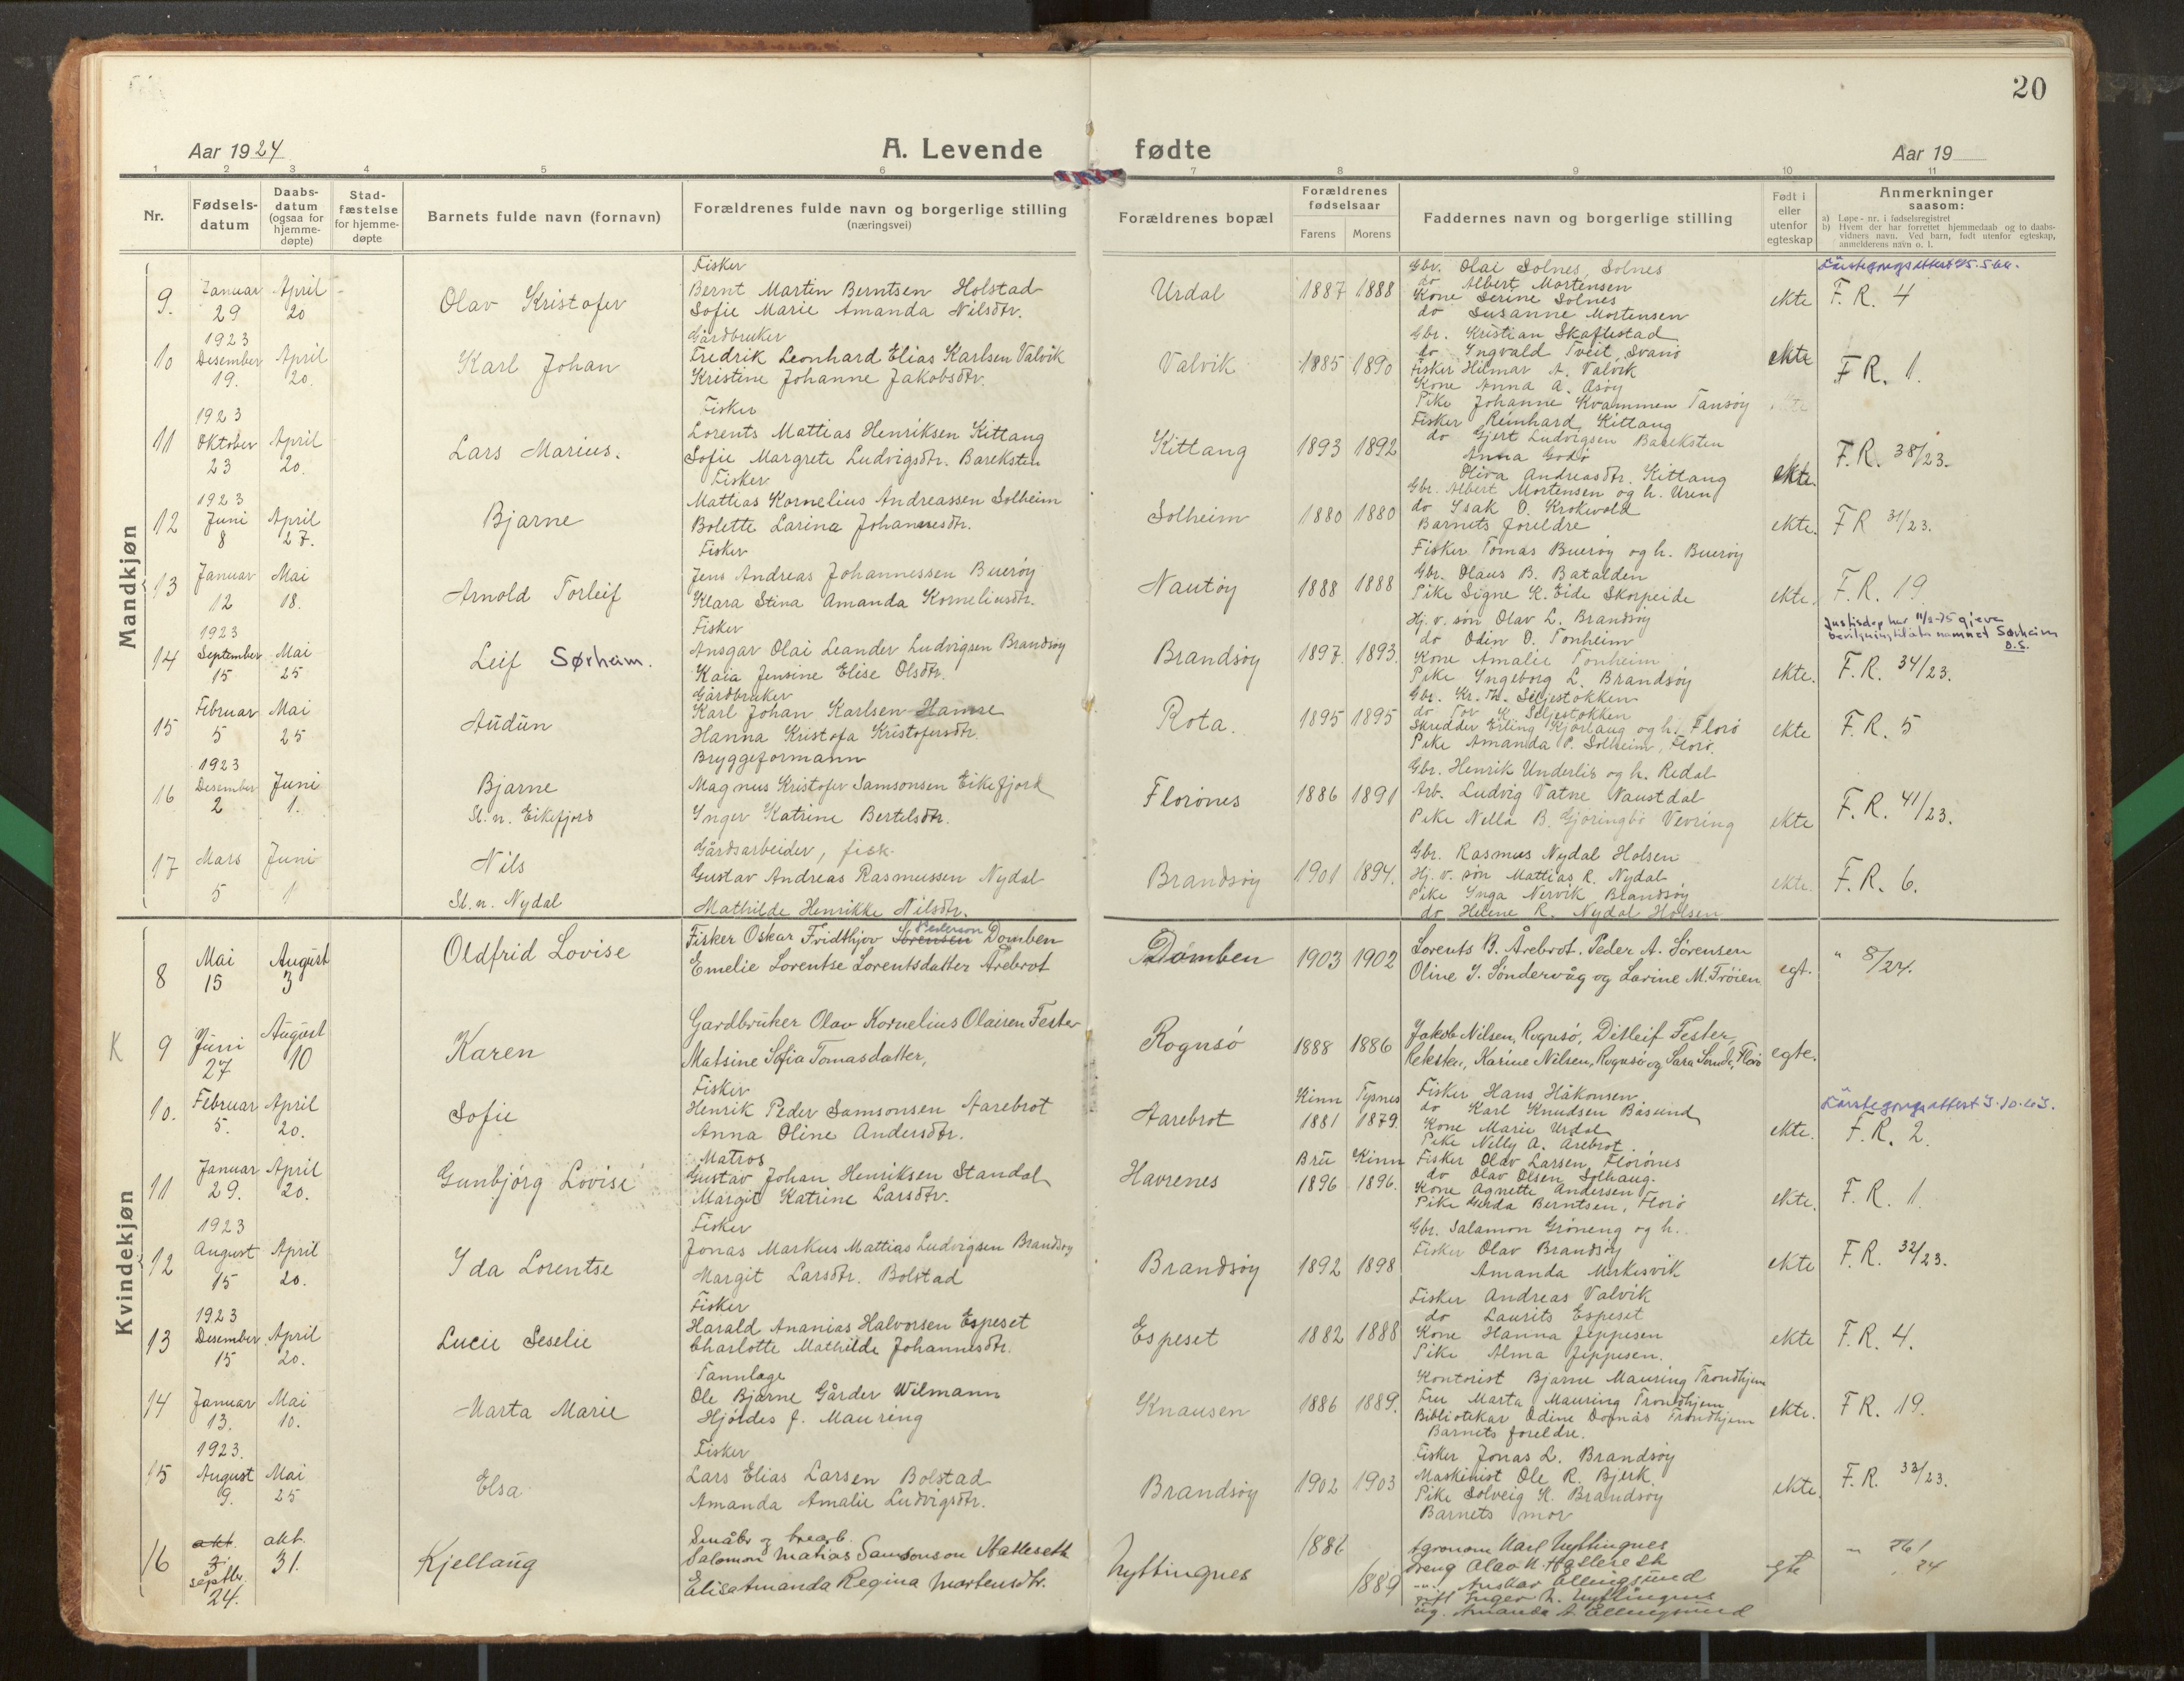 20
Aar 1924
A. Levende fødte
Aar 19
1 2 3 4 5 6 7 8 9 10 11
Nr.
Fødsels-
datum
Daabs-
datum
(ogsaa for
hjemme-
døpte)
Stad-
fæstelse
for hjemme-
døpte
Barnets fulde navn (fornavn)
Forældrenes fulde navn og borgerlige stilling
(næringsvei)
Forældrenes bopæl
Forældrenes
fødselsaar
Farens Morens
Faddernes navn og borgerlige stilling
Født i
eller
utenfor
egteskap
Anmerkninger
saasom:
a) Løpe-nr. i fødselsregistret
b) Hvem der har forrettet hjemmedaab og to daabs-
vidners navn. Ved barn, født utenfor egteskap,
anmelderens navn o. l.
Mandkjøn
9.
Januar
29
April
20
Olav Kristofer
Fisker
Bernt Martin Berntsen Holstad
Sofie Marie Amanda Nilsdtr.
Urdal
1887 1888
Gbr. Olai Solnes, Solnes
do Albert Mortensen
Kone Serine Solnes
do Susanne Mortensen
ekte
F. R. 4
10
1923
Desember
19.
April
20.
Karl Johan
Gårdbruker
Fredrik Leonhard Elias Karlsen Valvik
Kristine Johanne Jakobsdtr.
Valvik
1885 1890
Gbr. Kristian Skaflestad
do Yngvald Tveit, Svanö
Fisker Hilmar A. Valvik
Kone Anna A. Åsöy
Pike Johanne Kvammen Tansöy
ekte
F R. 1.
11
1923
Oktober
23
April
20.
Lars Marius.
Fisker
Lorents Mattias Henriksen Kittang
Sofie Margrete Ludvigsdtr. Bareksten
Kittang
1893 1892
Fisker Reinhard Kittang
do Gjert Ludvigsen Bareksten
Anna Godö
Oliva Andreasdtr. Kittang
ekte.
F.R. 38/23.
12
1923
Juni
8
April
27.
Bjarne
Fisker
Mattias Kornelius Andreassen Solheim
Bolette Larina Johannesdtr.
Solheim
1880 1880
Gbr. Albert Mortensen og h. Uren
do Isak O. Krokevold
Barnets foreldre
ekte.
F R 31/23.
13
Januar
12
Mai
18.
Arnold Torleif
Fisker
Jens Andreas Johannessen Bueröy
Klara Stina Amanda Korneliusdtr.
Nautöy
1888 1888
Fisker Tomas Bueröy og h. Bueröy
Gbr. Olaus B. Batalden
Pike Signe K. Eide Skorpeide
ekte.
F. R. 19.
14
1923
September
15
Mai
25
Leif Sørheim.
Fisker
Ansgar Olai Leander Ludvigsen Brandsöy
Kaia Jensine Elise Olsdtr.
Brandsöy
1897. 1893.
Hj. v. sön Olav L. Brandsöy
do Odin O. Tonheim
Kone Amalie Tonheim
Pike Yngeborg L. Brandsöy
ekte.
F. R. 34/23.
15
Februar
5
Mai
25
Audun
Gårdbruker
Karl Johan Karlsen Hamre
Hanna Kristofa Kristofersdtr.
Rota.
1895 1895
Gbr. Kr. Th. Seljestokken
do Tor K. Seljestokken
Skredder Erling Kjörlaug og h. Florö
Pike Amanda P. Solheim, Florö.
ekte
F. R. 5
16
1923
Desember
2
Juni
1.
Bjarne
Sl. n. Eikefjord
Bryggeformann
Magnus Kristofer Samsonsen Eikefjord
Ynger Katrine Bertelsdtr.
Florönes
1886 1891
Gbr. Henrik Underlis og h. Redal
Arb. Ludvig Vatne Naustdal
Pike Nella B. Gjöringbö Vevring
ekte
F. R. 41/23.
17
Mars
5
Juni
1
Nils
Sl. n. Nydal
Gårdsarbeider, fisk.
Gustav Andreas Rasmussen Nydal
Mathilde Henrikke Nilsdtr.
Brandsöy
1901 1894.
Gbr. Rasmus Nydal Holsen
Hj. v. sön Mattias R. Nydal
Pike Ynga Nervik Brandsöy
do Helene R. Nydal Holsen
ekte.
F. R. 6.
Kvindekjøn
8
Mai
15
August
3
Oldfrid Lovise
Pederson
Fisker Oskar Fridthjov Sörensen Domben
Emelie Lorentse Lorentsdatter Årebrot
Domben
1903 1902
Lorents B. Årebrot. Peder A. Sörensen
Oline J. Söndervåg og Larine M. Tröien.
egt.
" 8/24.
K
9
Juni
27
August
10
Karen
Gardbruker Olav Kornelius Olaisen Fester
Matsine Sofia Tomasdatter,
Rognsö
1888 1886
Jakob Nilsen, Rognsö, Ditleif Fester,
Reksten, Karine Nilsen, Rognsö og Sara Sunde, Florö
egte.
10.
Februar
5.
April
20.
Sofie
Fisker
Henrik Peder Samsonsen Aarebrot
Anna Oline Andersdtr.
Aarebrot
Kinn Tysnes
1881 1879.
Fisker Hans Håkonsen
do Karl Knudsen Båsund
Kone Marie Urdal
Pike Nelly A. Årebrot
ekte.
F. R. 2.
11
Januar
29.
April
20.
Gunbjörg Lovise
Matros
Gustav Johan Henriksen Standal
Margit Katrine Larsdtr.
Havrenes
Bru Kinn
1896 1896.
Fisker Olav Larsen, Florönes
do Olav Olsen Solhaug.
Kone Agnette Andersen
Pike Gerda Berntsen, Florö
ekte.
F. R. 1.
12
1923
August
15
April
20.
Yda Lorentse
Fisker
Jonas Markus Mattias Ludvigsen Brandsöy
Margit Larsdtr. Bolstad
Brandsöy
1892 1898
Gbr. Salamon Gröneng og h.
Fisker Olav Brandsöy
Amanda Merkesvik
ekte
F. R. 32/23.
13
1923
Desember
15
April
20.
Lucie Seselie
Fisker
Harald Ananias Halvorsen Espeset
Charlotte Mathilde Johannesdtr.
Espeset
1882 1888
Fisker Andreas Valvik
do Laurits Espeset
Kone Hanna Jeppesen
Pike Alma Jeppesen.
ekte
F. R. 4.
14
Januar
13.
Mai
10.
Marta Marie
Tannlæge
Ole Bjarne Gårder Wilmann
Hjördes f. Mauring
Knausen
1886 1889.
Kontorist Bjarne Mauring Trondhjem
Fru Marta Mauring Trondhjem
Bibliotekar Odine Domås Trondhjem
Barnets foreldre.
ekte.
F R. 19.
15
1923.
August
9.
Mai
25
Elsa
Fisker
Lars Elias Larsen Bolstad
Amanda Amalie Ludvigsdtr.
Brandsöy
1902 1903
Fisker Jonas L. Brandsöy
Maskinist Ole R. Bjerk
Pike Solveig K. Brandsöy
Barnets mor
ekte.
F. R. 33/23.
16
septbr.
24.
okt.
31.
Kjellaug
Salomon Matias Samsonson Hatleseth
Elisa Amanda Regina Mortensdtr.
Nyttingnes
1886
1889
Agronom Karl Nyttingnes
Dreng Olav M. Hatleseth
egte
24